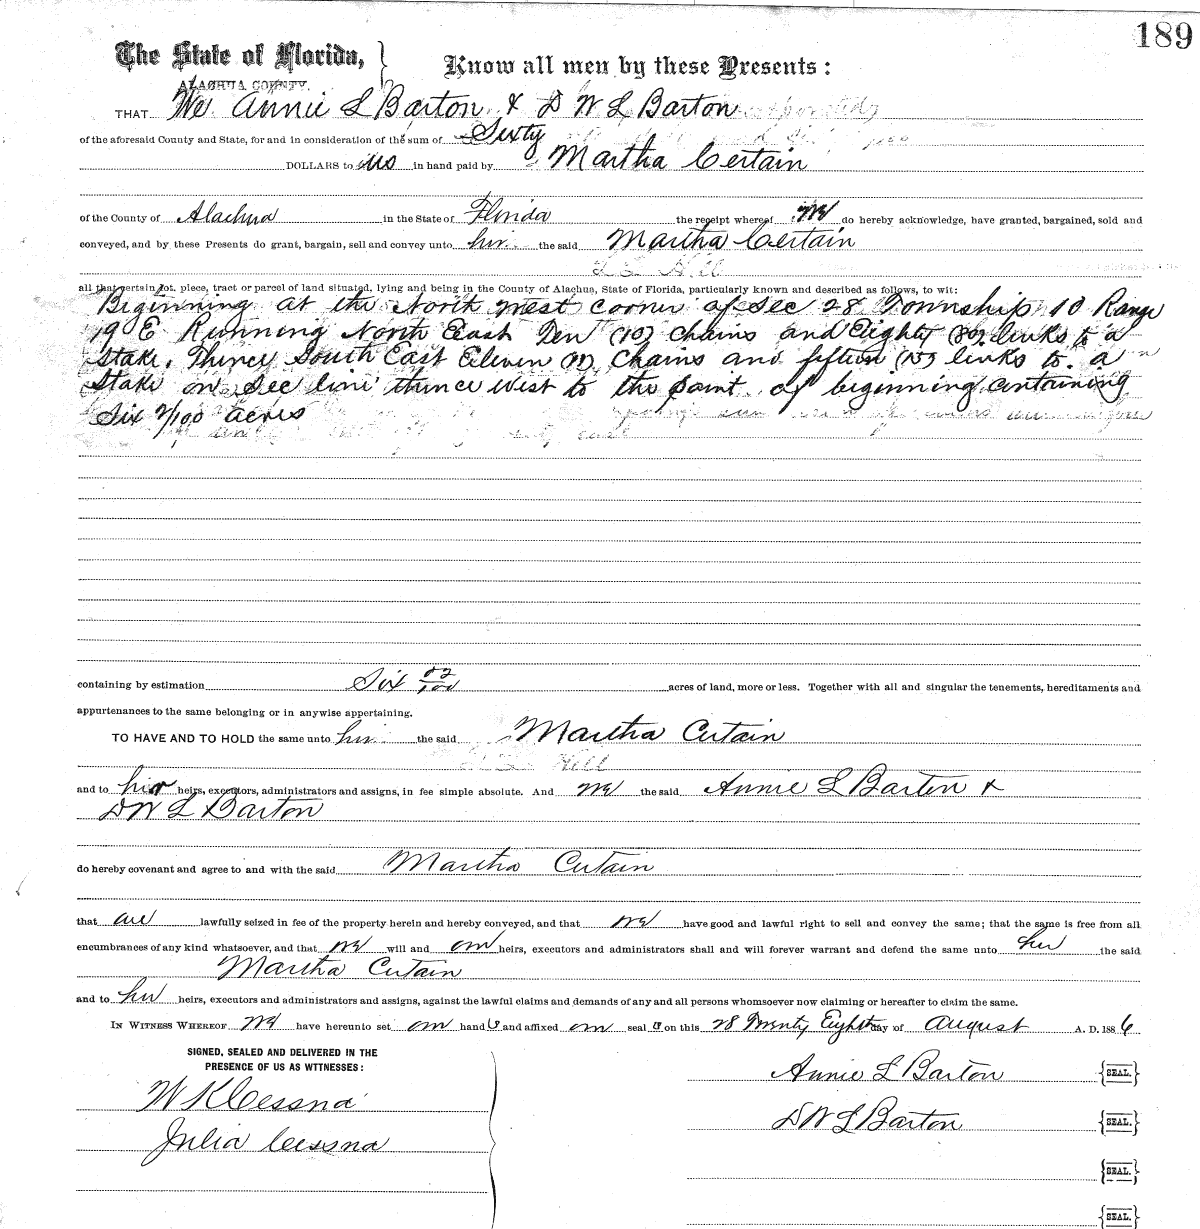 189
The State of Florida, } Know all men by these Presents:
ALACHUA COUNTY.
THAT We Annie L Barton & D W L Barton
of the aforesaid County and State, for and in consideration of the sum of Sixty
DOLLARS to us in hand paid by Martha Certain
of the County of Alachua in the State of Florida the receipt whereof we do hereby acknowledge, have granted, bargained, sold and
conveyed, and by these Presents do grant, bargain, sell and convey unto her the said Martha Certain
all that certain lot, piece, tract or parcel of land situated, lying and being in the County of Alachua, State of Florida, particularly known and described as follows, to wit:
Beginning at the North West corner of Sec 28 Township 10 Range
19 E Running North East Ten (10) Chains and Eighty (80) links to a
stake, Thence South East Eleven (11) Chains and fifteen (15) links to a
Stake on Sec line thence West to the point of beginning containing
Six 2/100 acres
containing by estimation Six 02/100 acres of land, more or less. Together with all and singular the tenements, hereditaments and
appurtenances to the same belonging or in anywise appertaining.
TO HAVE AND TO HOLD the same unto her the said Martha Certain
and to her heirs, executors, administrators and assigns, in fee simple absolute. And we the said Annie L Barton &
D W L Barton
do hereby covenant and agree to and with the said Martha Certain
that are lawfully seized in fee of the property herein and hereby conveyed, and that we have good and lawful right to sell and convey the same; that the same is free from all
encumbrances of any kind whatsoever, and that we will and our heirs, executors and administrators shall and will forever warrant and defend the same unto her the said
Martha Certain
and to her heirs, executors and administrators and assigns, against the lawful claims and demands of any and all persons whomsoever now claiming or hereafter to claim the same.
IN WITNESS WHEREOF We have hereunto set our hands and affixed our seals on this 28 Twenty Eighth day of August A. D. 1886
SIGNED, SEALED AND DELIVERED IN THE
PRESENCE OF US AS WITNESSES:
Annie L Barton {SEAL.}
W K Cessna
D W L Barton {SEAL.}
Julia Cessna
{SEAL.}
{SEAL.}